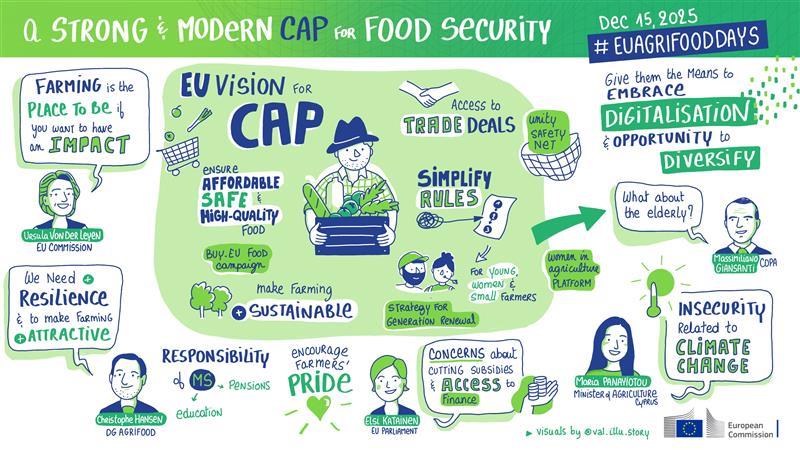 a STRONG & MODERN CAP FOR FOOD SECURITY
DEC 15, 2025
# EUAGRIFOODDAYS
FARMING is the
PLACE TO BE if
you want to have
an IMPACT
Ursula Von Der Leyen
EU COMMISSION
We Need +
RESILIENCE
& to make FARMING
+ ATTRACTIVE
Christophe HANSEN
DG AGRIFOOD
EU VISION FOR
CAP
ensure
AFFORDABLE
SAFE &
HIGH-QUALITY
FOOD
BUY EU FOOD
campaign
make Farming
+ SUSTAINABLE
Access to
TRADE DEALS
unity
SAFETY
NET
SIMPLIFY
RULES
1
2
3
FOR YOUNG,
WOMEN &
Small FARMERS
Strategy FOR
Generation Renewal
women in
agriculture
PLATFORM
Give them the Means to
EMBRACE
DIGITALISATION
& OPPORTUNITY to
DIVERSIFY
What about
the elderly?
Massimiliano
GIANSANTI
COPA
RESPONSIBILITY
of MS
Pensions
education
encourage
FARMERS'
PRIDE
Elsi KATAINEN
EU PARLIAMENT
CONCERNS about
CUTTING SUBSIDIES
& ACCESS to
Finance
Maria PANAYIOTOU
Minister of AGRICULTURE
CYPRUS
INSECURITY
Related to
CLIMATE
CHANGE
visuals by @val.illu.story
European
Commission